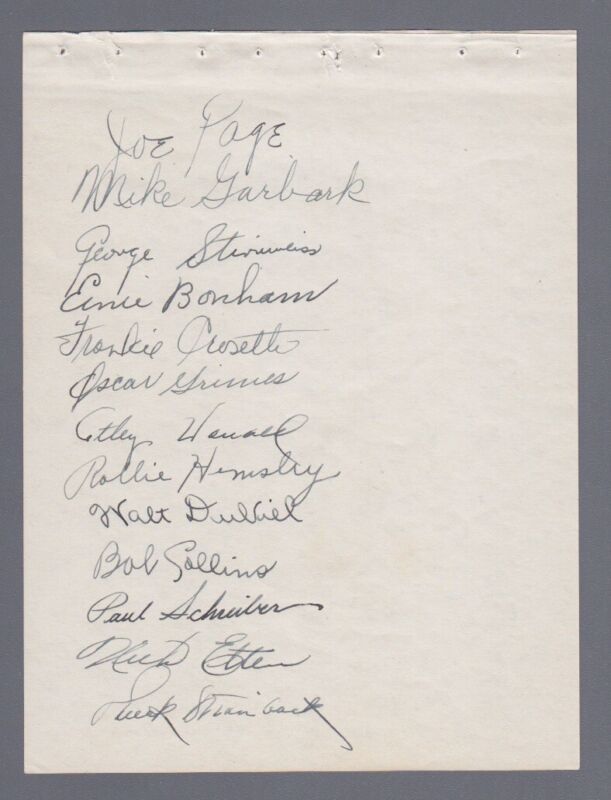 Joe Page
Mike Garbark
George Stirnweiss
Ernie Bonham
Frankie Crosetti
Oscar Grimes
Atley Donald
Rollie Hemsley
Walt Dubiel
Bob Collins
Paul Schreiber
Nick Etten
Tuck Stainback